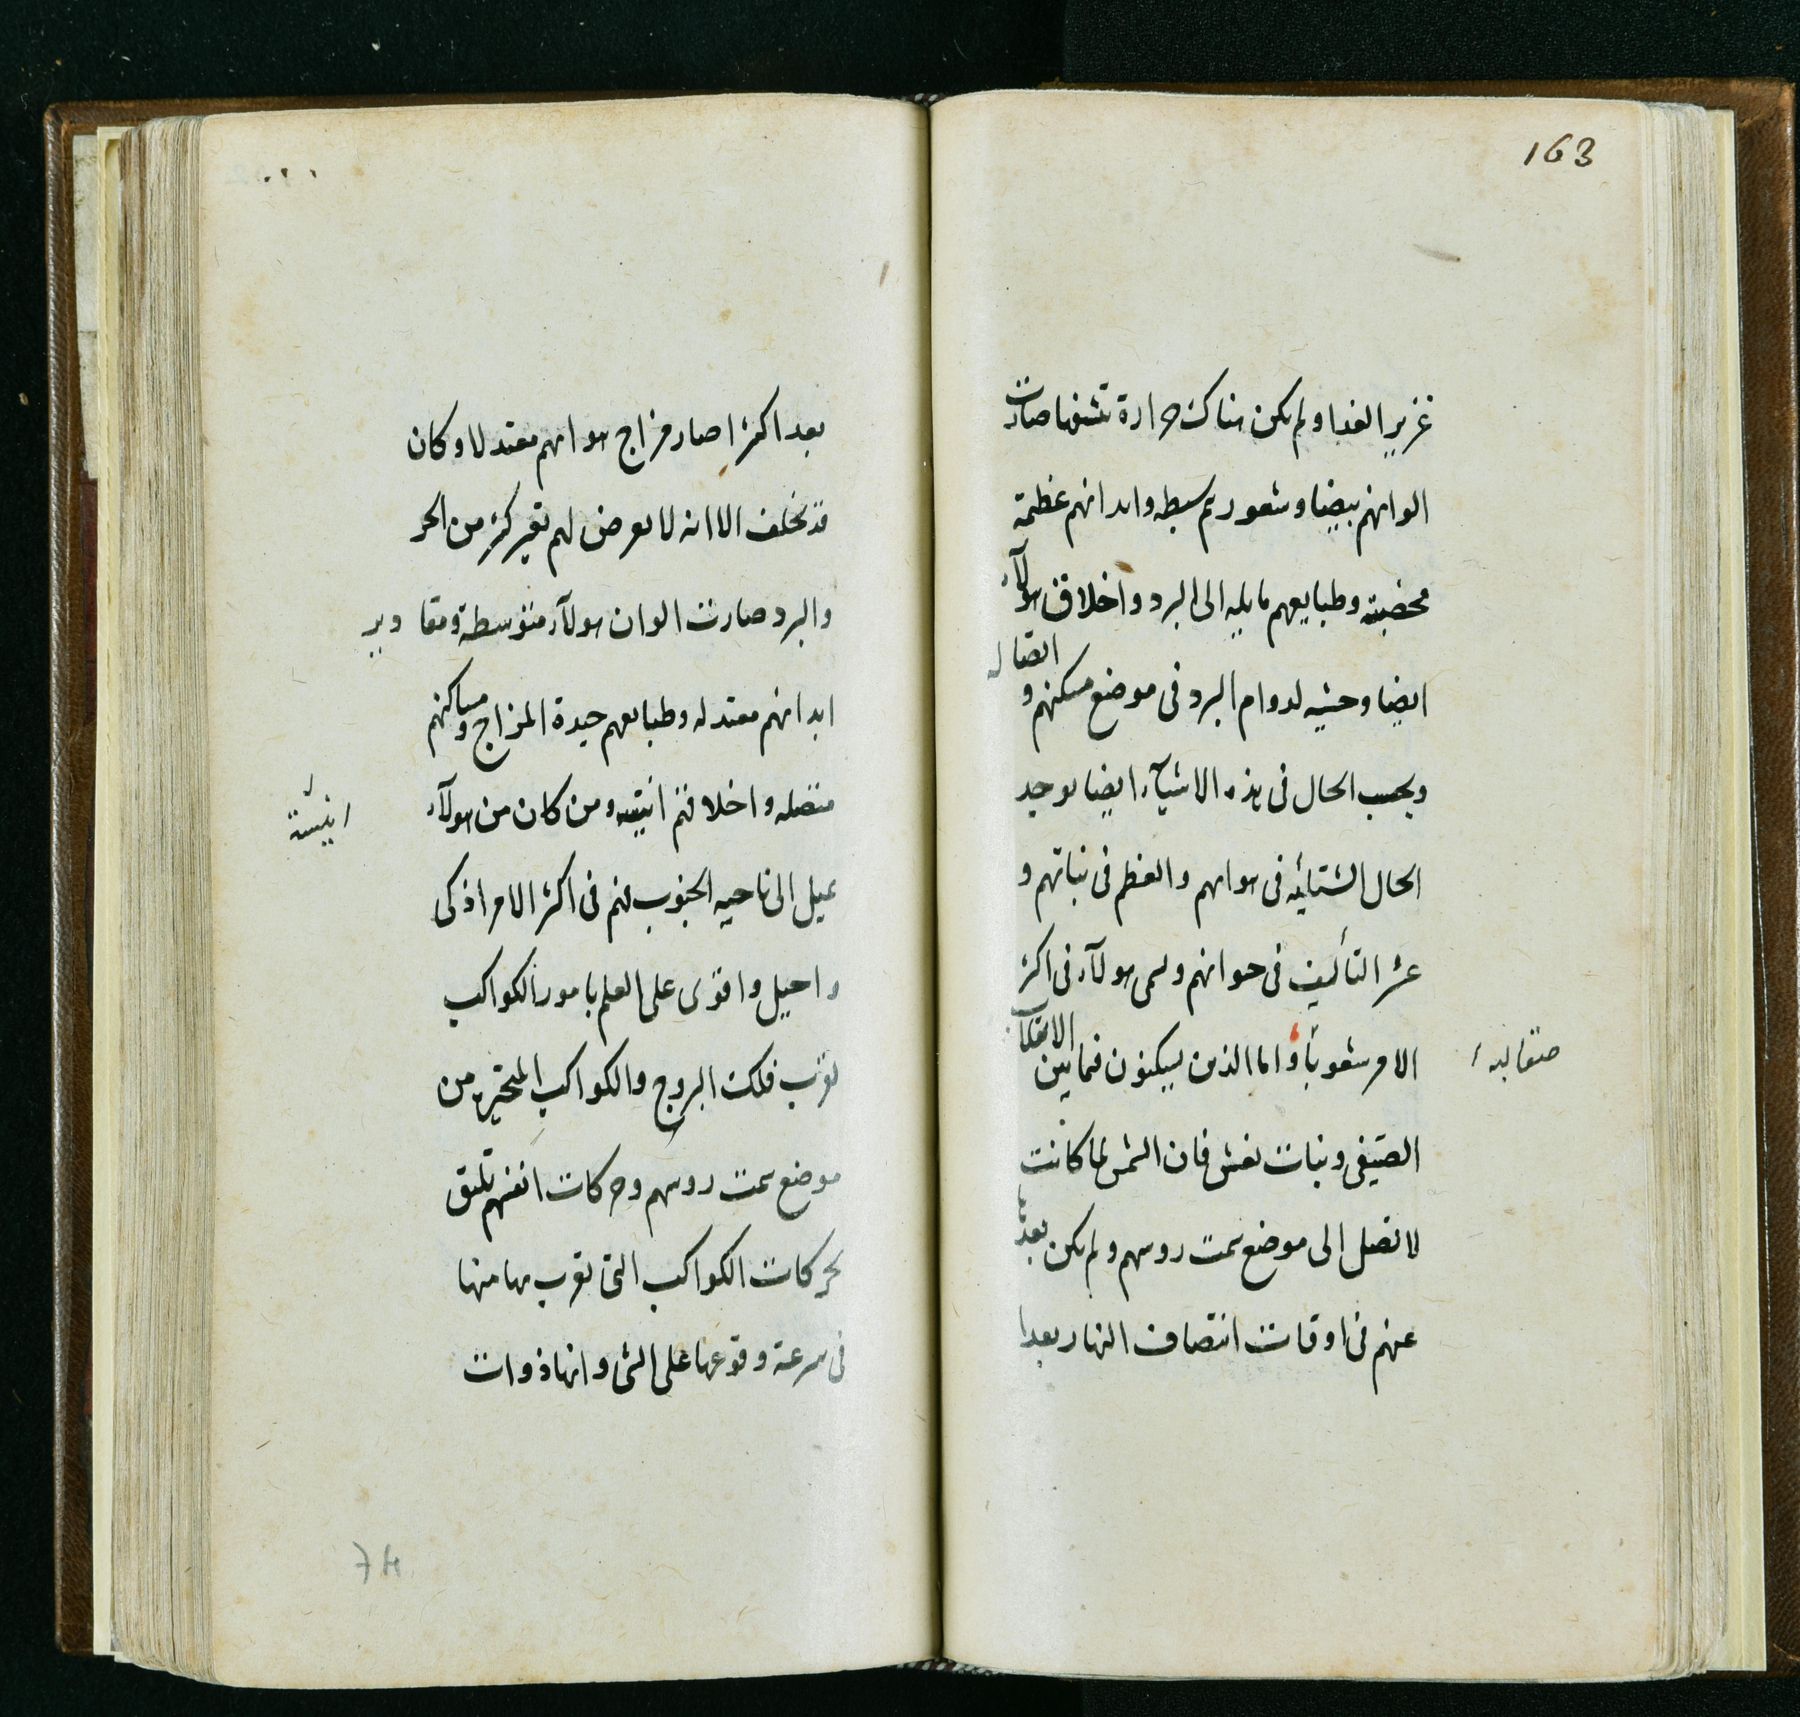 163
غزير الغذا ولم يكن هناك حرارة تنشفها صارت
الوانهم بيضا وشعورهم سبطه وابدانهم عظيمة
مخصبة وطبايعهم مايله الى البرد واخلاق هولآء
ايضا وحشيه لدوام البرد فى موضع مسكنهم و
اتصاله
وبحسب الحال فى هذه الاشيآء ايضا يوجد
الحال الشتائيه فى هوايهم والعظم فى نباتهم و
عسر التأليف فى حيوانهم ويسمى هولآء فى اكثر
الامر سقوثا واما الذين يسكنون فيما بين الانقلاب
صقالبه
الصيفى وبنات نعش فان الشمس لما كانت
لا تصل الى موضع سمت روسهم ولم يكن بعدها
عنهم فى اوقات انتصاف النهار بعدا
بعدا كثيرا صار مزاج هوائهم معتدلا وكان
قد يختلف الا انه لا يعرض لهم تغير كثير من الحر
والبرد صارت الوان هولآء متوسطة ومقادير
ابدانهم معتدله وطبايعهم جيدة المزاج ومساكنهم
متصله واخلاقهم انيسه ومن كان من هولآء
انيسة
يميل الى ناحيه الجنوب فهم فى اكثر الامر اذكى
واحيل واقوى على العلم بامور الكواكب
لقرب فلك البروج والكواكب المتحيره من
موضع سمت روسهم وحركات انفسهم تليق
بحركات الكواكب التى تقرب بها منها
فى سرعة وقوعها على الشى وانها ذوات
74